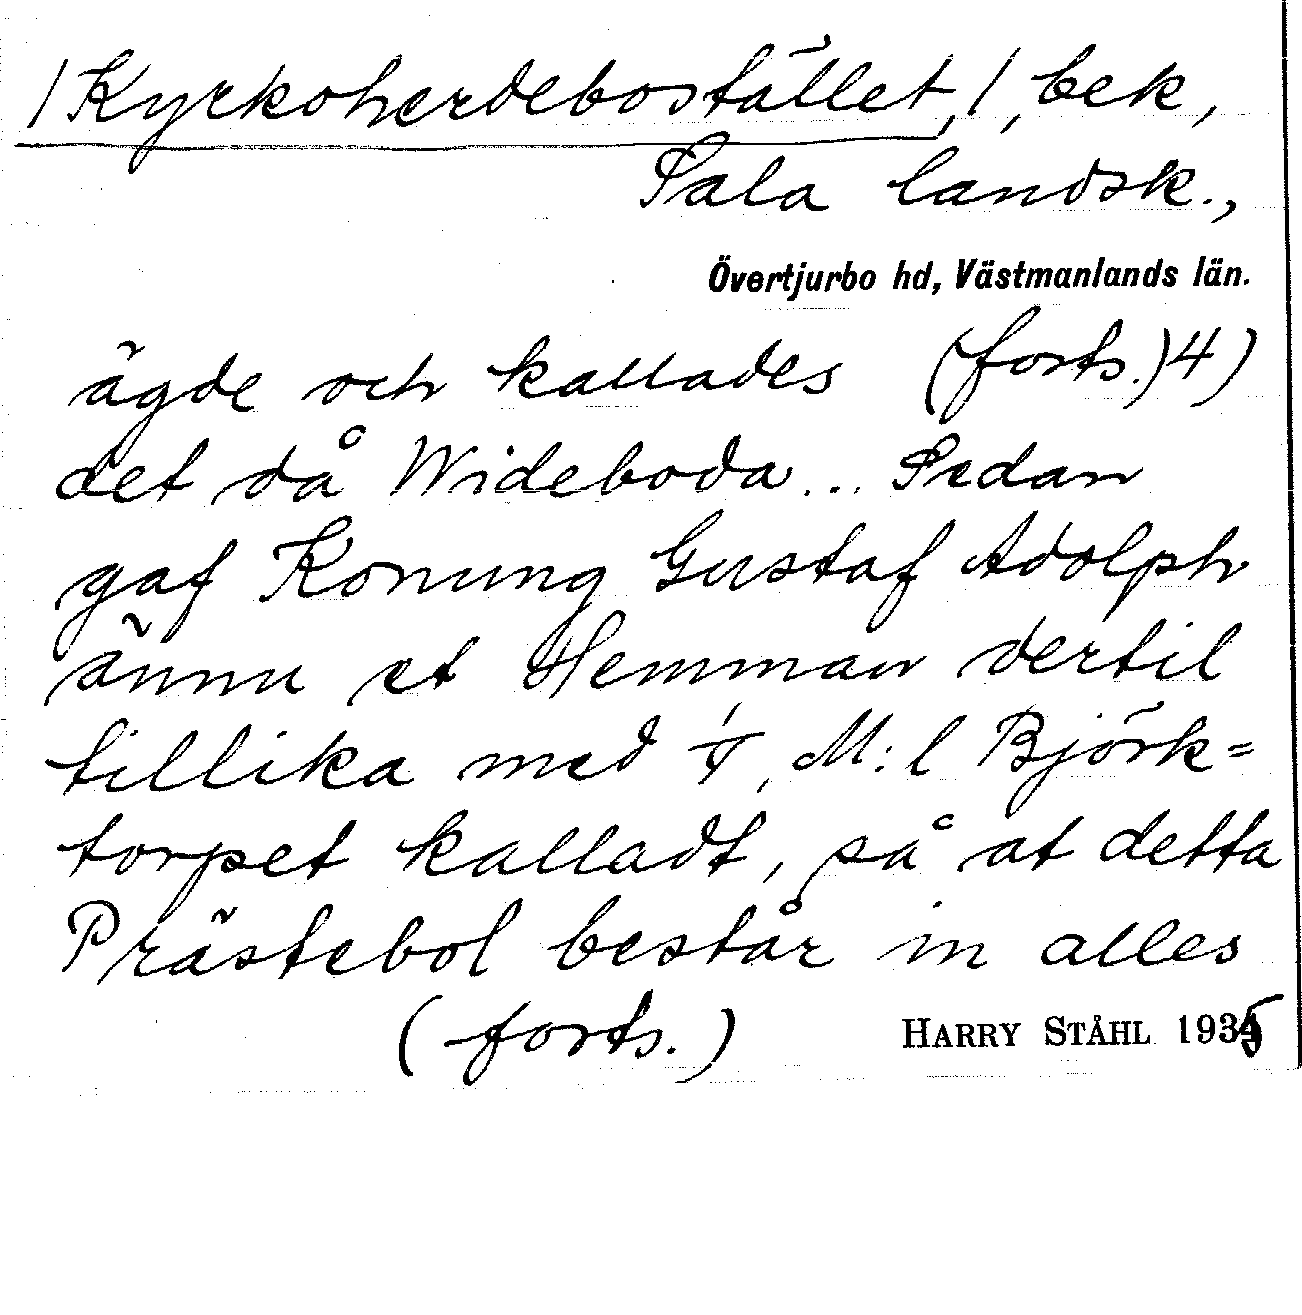 /Kyrkoherdebostället,/, bek,
Sala landsk.,
Övertjurbo hd, Västmanlands län.
ägde och kallades (forts.) 4)
det då Wideboda... Sedan
gaf Konung Gustaf Adolph
ännu et Hemman dertil
tillika med M:l Björk=
torpet kalladt, så at detta
Prästebol består in alles
(forts.) HARRY STÅHL 1935